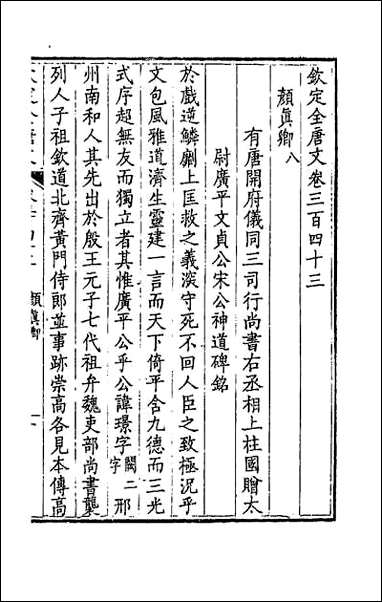 欽定全唐文卷三百四十三
顏眞卿八
有唐開府儀同三司行尚書右丞相上柱國贈太
尉廣平文貞公宋公神道碑銘
於戲逆鱗劘上匡救之義深守死不回人臣之致極況乎
文包風雅道濟生靈建一言而天下倚平含九德而三光
式序超無友而獨立者其惟廣平公乎公諱璟字闕二字邢
州南和人其先出於殷王元子七代祖弁魏吏部尚書襲
列人子祖欽道北齊黃門侍郎並事跡崇高各見本傳高
顏眞卿
一